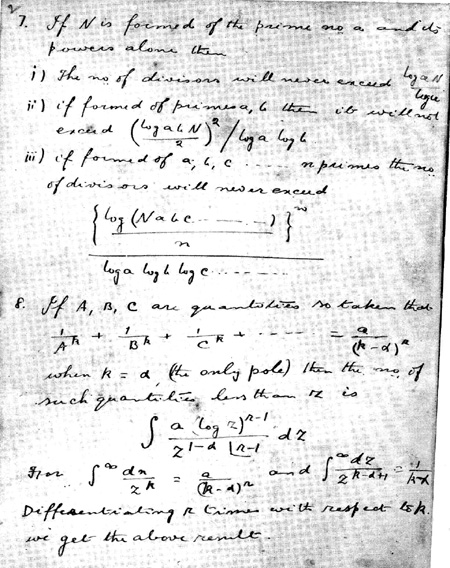 2
7. If N is formed of the prime no. a and its
powers alone then
i) The no of divisors will never exceed log aN / log a
ii) if formed of primes a, b then it will not
exceed (log abN / 2)² / log a log b
iii) if formed of a, b, c ...... n primes the no.
of divisors will never exceed
{log (Nabc ......) / n}ⁿ
log a log b log c ......
8. If A, B, C are quantities so taken that
1/Aᵏ + 1/Bᵏ + 1/Cᵏ + ...... = a/(k-α)ʳ
when k = α (the only pole) then the no. of
such quantities less than z is
∫ a (log z)ʳ⁻¹ / z¹⁻α |r-1 dz
For ∫^∞ dn/zᵏ = a/(k-α)ʳ and ∫^∞ dz/z^(k-α+1) = 1/(k-α)
Differentiating r times with respect to k.
we get the above result.